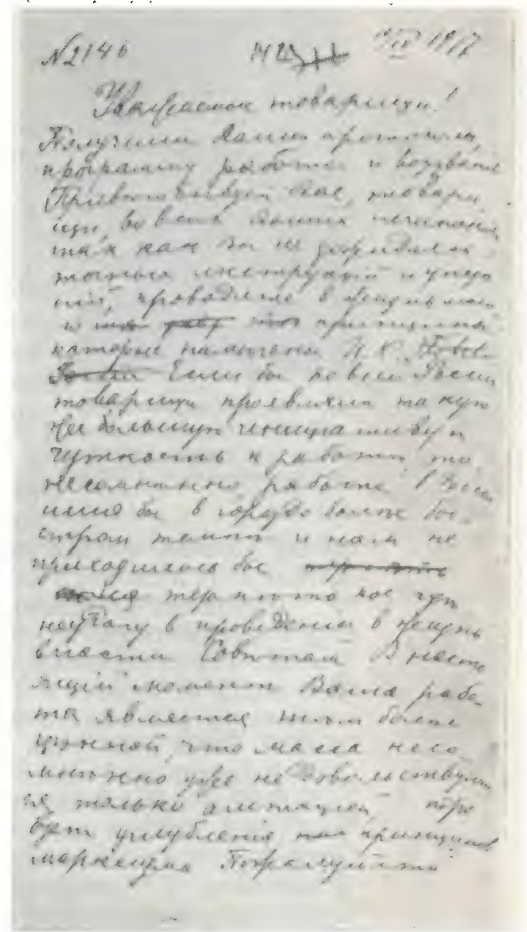 №2146 14 29/IV 1917
Уважаемые товарищи!
Получили Ваши протоколы,
программу работы и воззвание
Приветствуем Вас, товари
щи, во всех Ваших начинаниях
так как Вы не дожидаясь
точных инструкций и указа
ний, проводите в жизнь
принципы
которые намечены Ц. К.
Если бы по всей России
товарищи проявляли такую
же большую инициативу и
чуткость к работе, то
несомненно работа в России
шла бы в гораздо более бы
стром темпе и нам не
приходилось бы
терпеть
неудачу в проведении в жизнь
власти Советам В насто
ящий момент Ваша рабо
та является тем более
ценной, что масса несо
мненно уже не довольствует
ся только агитацией, тре
бует углубления принципов
марксизма Пожалуйста